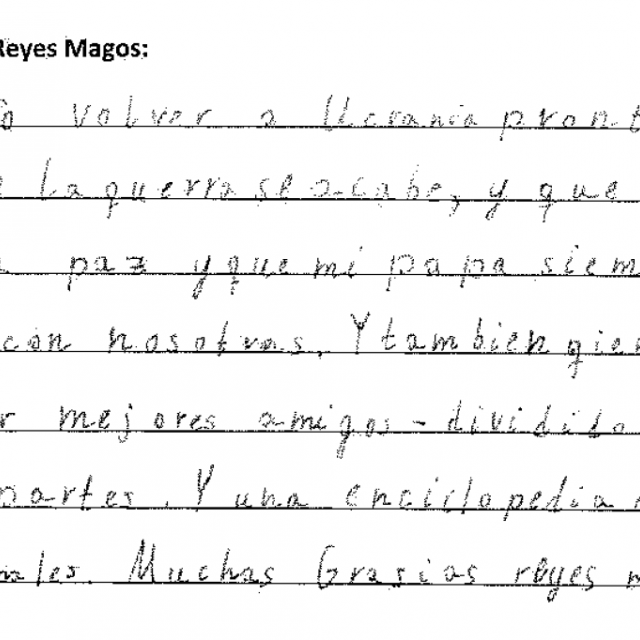 Reyes Magos:
volver a Ucrania pront
la guerra se acabe, y que
paz y que mi papa siem
con nosotras. Y tambien qier
r mejores amigos - dividido
partes. Y una enciclopedia
males. Muchas Grasias reyes m